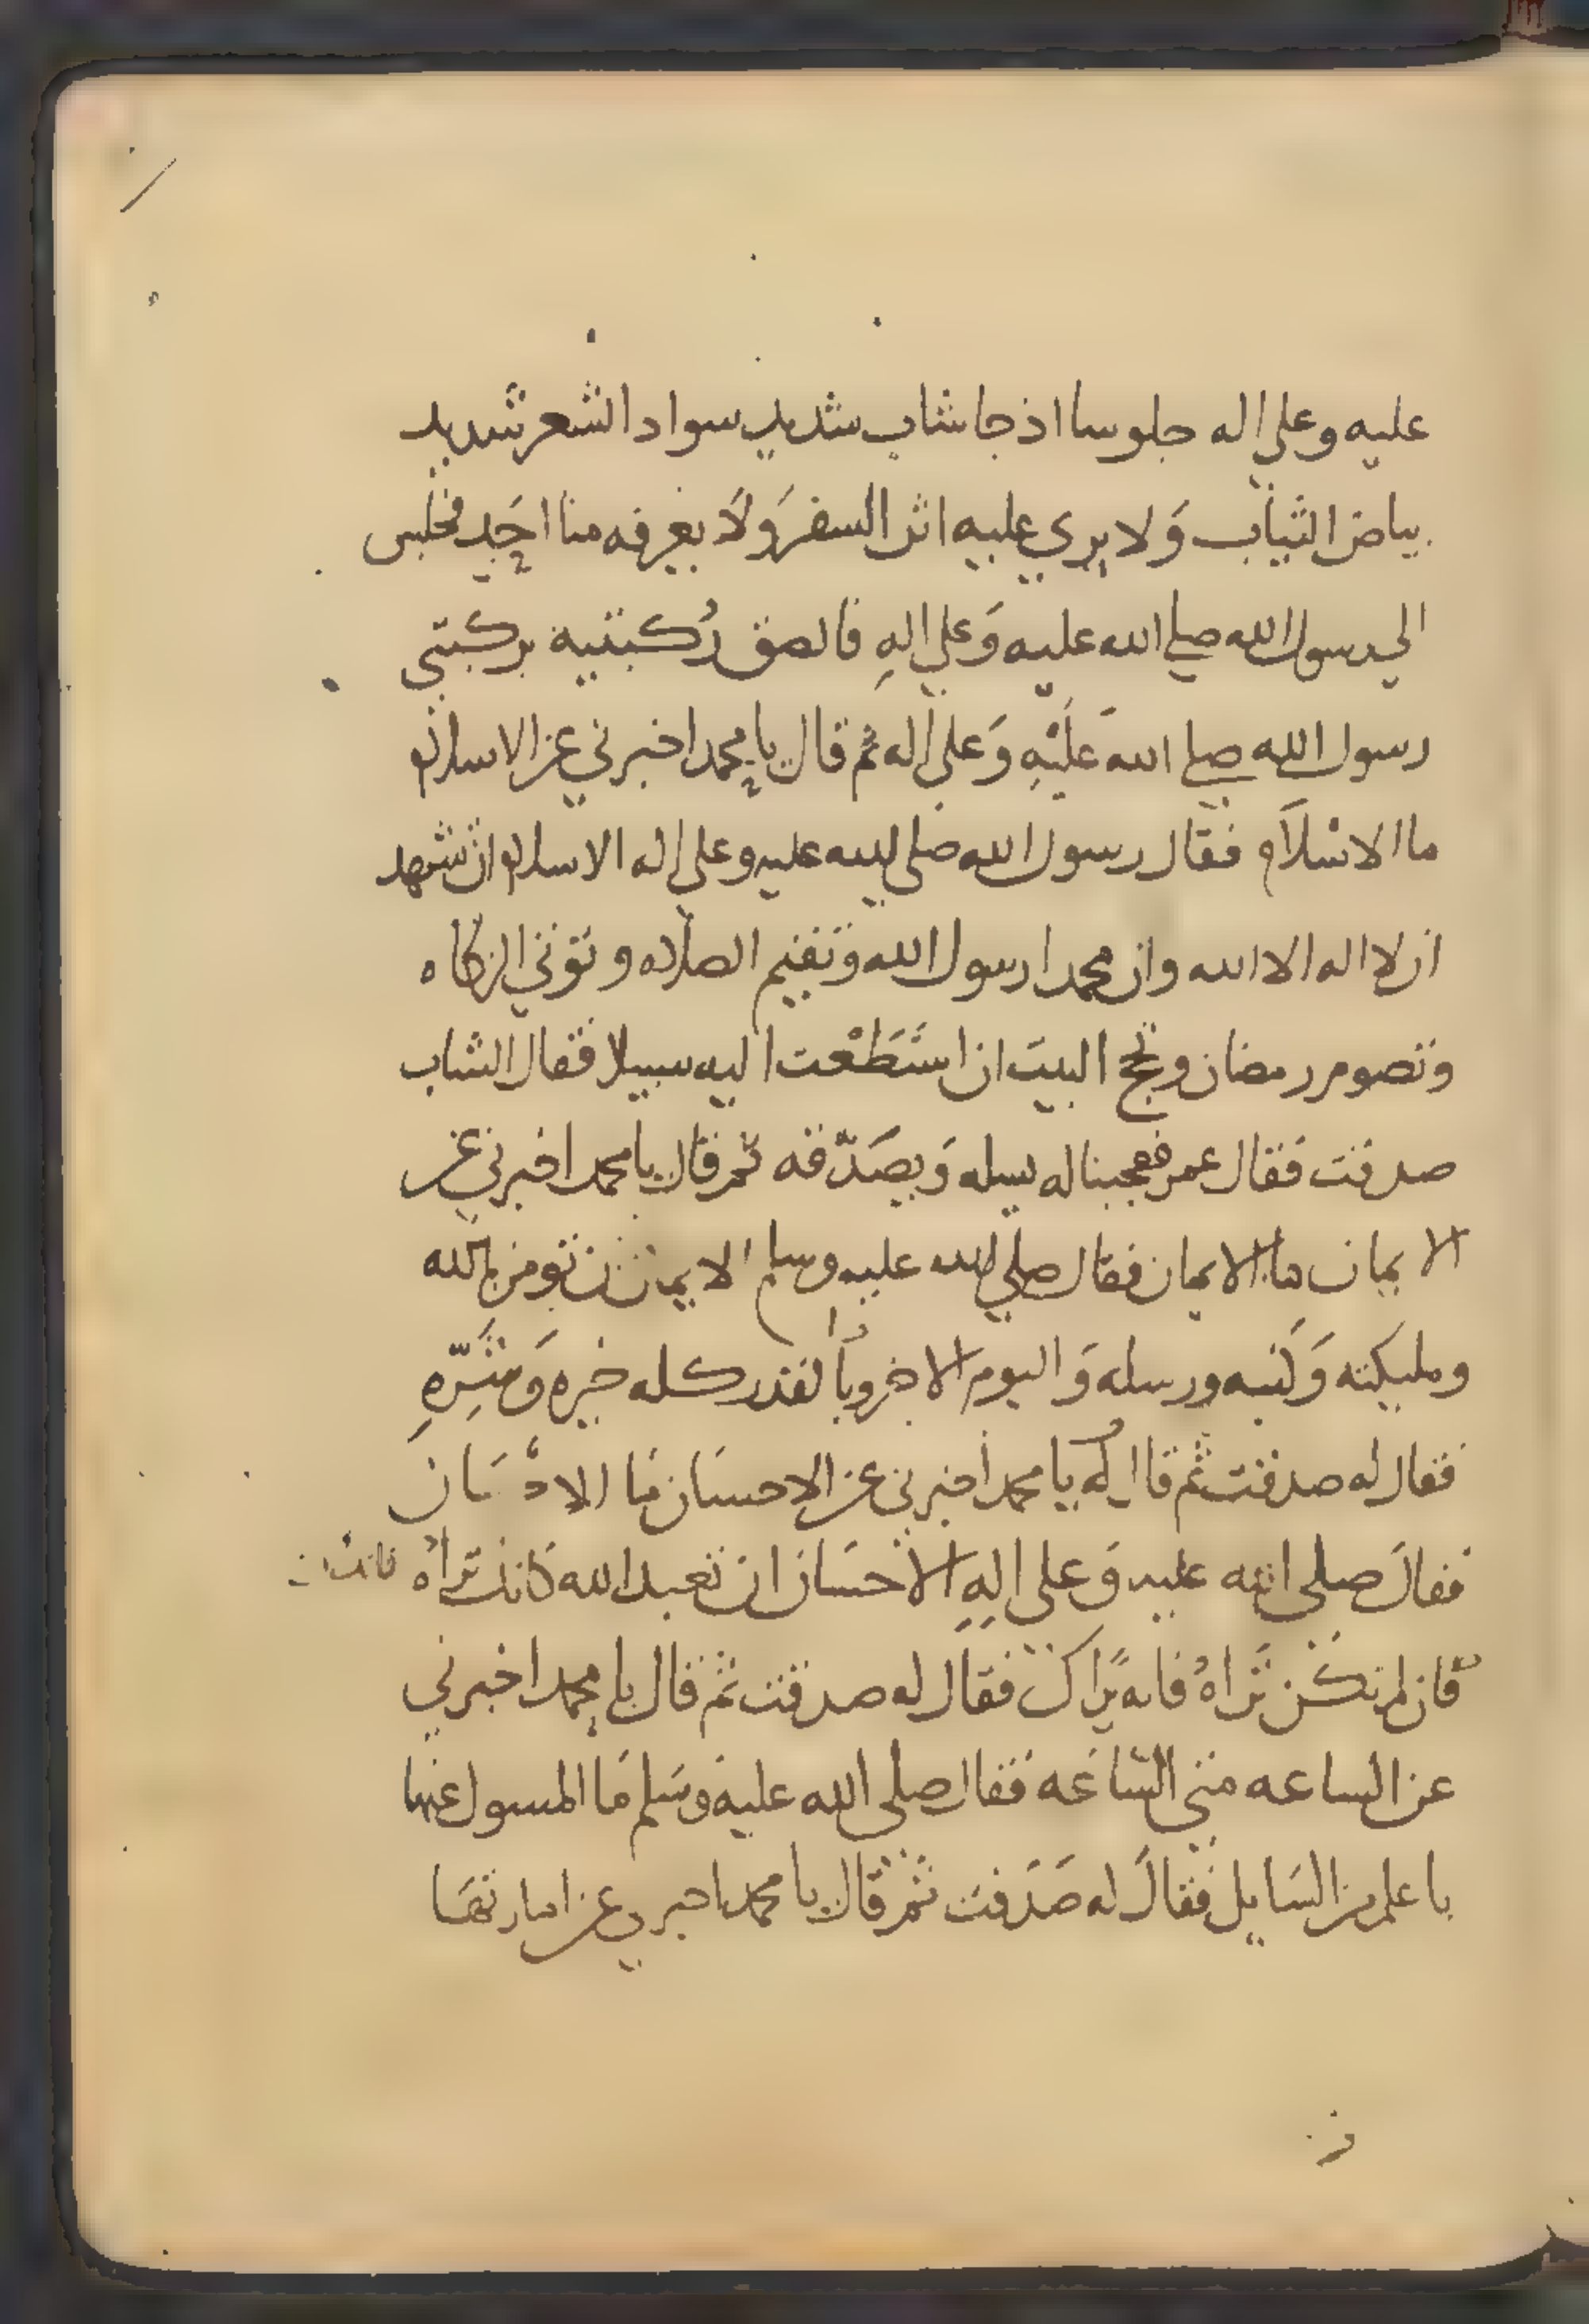 عليه وعلى اله جلوسا اذ جا شاب شديد سواد الشعر شديد
بياض الثياب وَلا يري عليه اثر السفر وَلَا يعرفه منا احَد فجلس
الي رسول الله صلى الله عليه وَعلى الهِ فالصق رُكبتيه بركبتي
رسول الله صلى الله عَليْهِ وَعلى اله ثم قال يا محمد اخبرني عن الاسلام
ما الاسْلَام فقال رسول الله صلى الله عليه وعلى اله الاسلام ان تشهد
ان لا اله الا الله وان محمدا رسول الله وتقيم الصلاه وتوتي الزكاه
وتصوم رمضان وتحج البيت ان اسْتَطَعْت اليه سبيلا فقال الشاب
صدقت فقال عمر فعجبنا له يسله وَيصَدّقه ثم قال يا محمد اخبرني عن
الايمان ما الايمان فقال صلى الله عليه وسلم الايمان ان تومن بالله
ومليكته وَكتبه ورسله وَاليوم الاخر وبالقدر كله خيره وَشَرّهِ
فقال له صدقت ثم قال له يا محمد اخبرني عن الاحسان مَا الاحْسَان
فقالَ صلى الله عليه وَعلى الهِ الاحْسَان ان تعبد الله كانك تراهُ
فان لم تكن تَراهُ فانه يَراك فقال له صدقت ثم قال يا محمد اخبرني
عن الساعه متي السَّاعَه فقال صلى الله عليه وسَلم مَا المسول عنها
باعلم من السَايل فقالَ له صَدَقت ثم قال يا محمد اخبرني عن امارتهَا